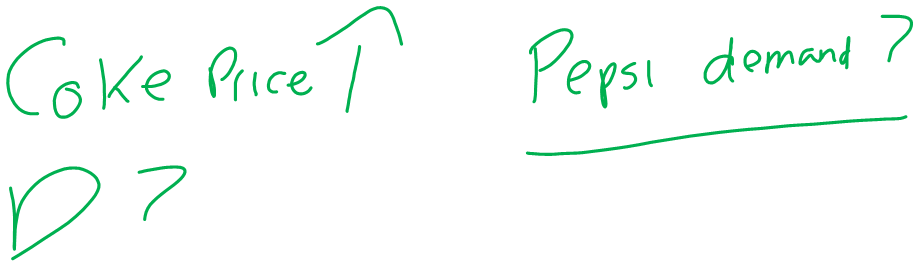 Coke Price ↑
Pepsi demand ?
D ?